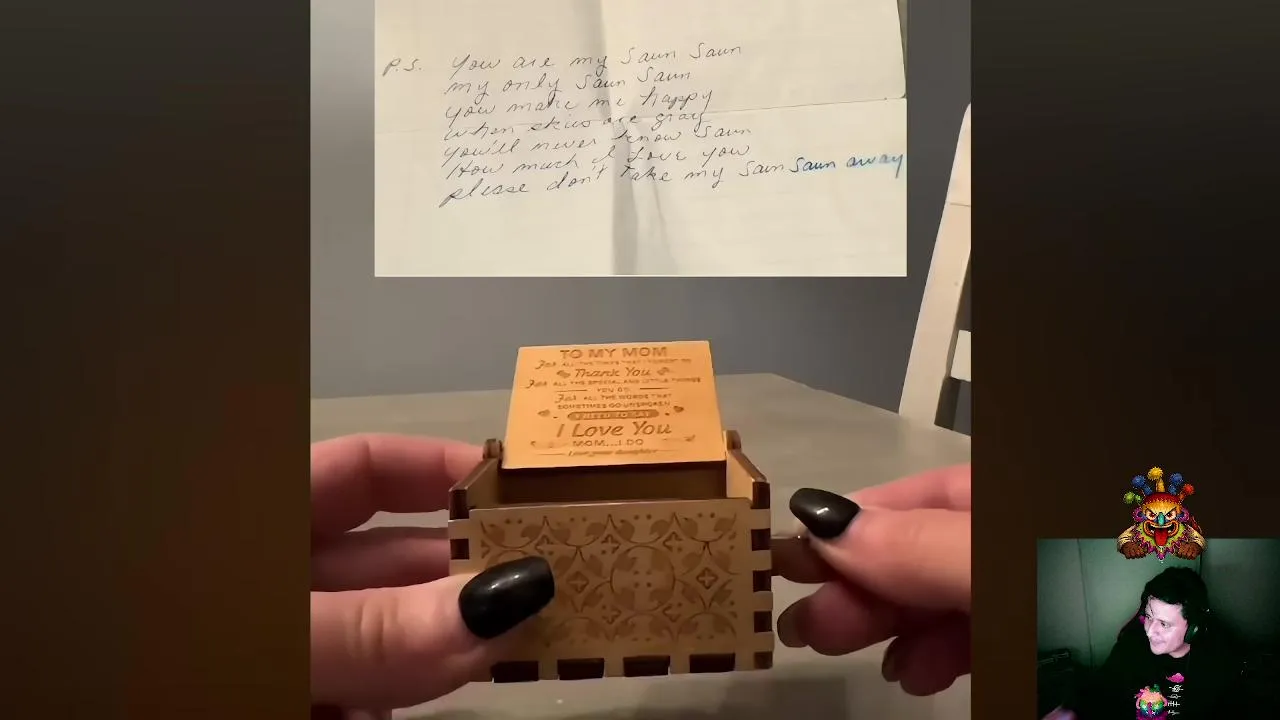 P.S. You are my Saun Saun
my only Saun Saun
you make me happy
when skies are gray
you'll never know Saun
How much I Love you
please don't take my Saun Saun away
TO MY MOM
For ALL THE TIMES THAT I FORGET TO
Thank You
For ALL THE SPECIAL AND LITTLE THINGS
YOU DO
For ALL THE WORDS THAT
SOMETIMES GO UNSPOKEN
I NEED TO SAY
I Love You
MOM...I DO
Love your daughter